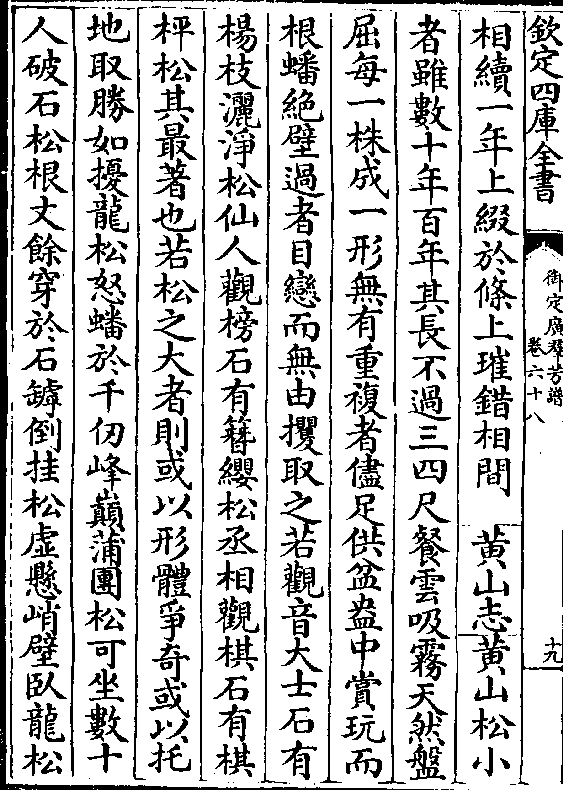 欽定四庫全書
御定廣羣芳譜
卷六十八
十九
相續一年上綴於條上璀錯相間　黃山志黃山松小
者雖數十年百年其長不過三四尺餐雲吸霧天然盤
屈每一株成一形無有重複者儘足供盆盎中賞玩而
根蟠絶壁過者目戀而無由攫取之若觀音大士石有
楊枝灑淨松仙人觀榜石有簪纓松丞相觀棋石有棋
枰松其最著也若松之大者則或以形體爭奇或以托
地取勝如擾龍松怒蟠於千仞峰巔蒲團松可坐數十
人破石松根丈餘穿於石罅倒挂松虛懸峭壁臥龍松